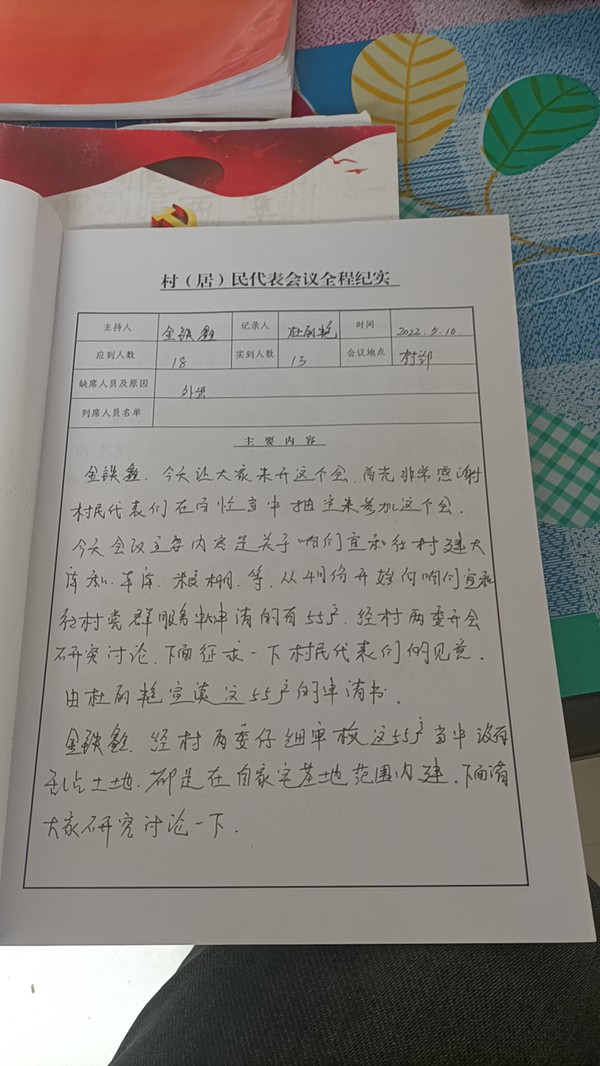 村（居）民代表会议全程纪实
主持人 金铁鑫 记录人 杜丽艳 时间 2022.5.10.
应到人数 18 实到人数 15 会议地点 村部
缺席人员及原因
列席人员名单
主要内容
金铁鑫.今天让大家来开这个会.首先非常感谢
村民代表们在百忙当中抽空来参加这个会.
今天会议主要内容是关于咱们宜和红村建大
库和.车库.粮棚.等.从4月份开始向咱们宜和
红村党群服务申请的有55户.经村两委开会
研究讨论.下面征求一下村民代表们的见意.
由杜丽艳宣读这55户的申请书.
金铁鑫.经村两委仔细审核这55户当中没有
乱占土地.都是在自家宅基地范围内建.下面请
大家研究讨论一下.